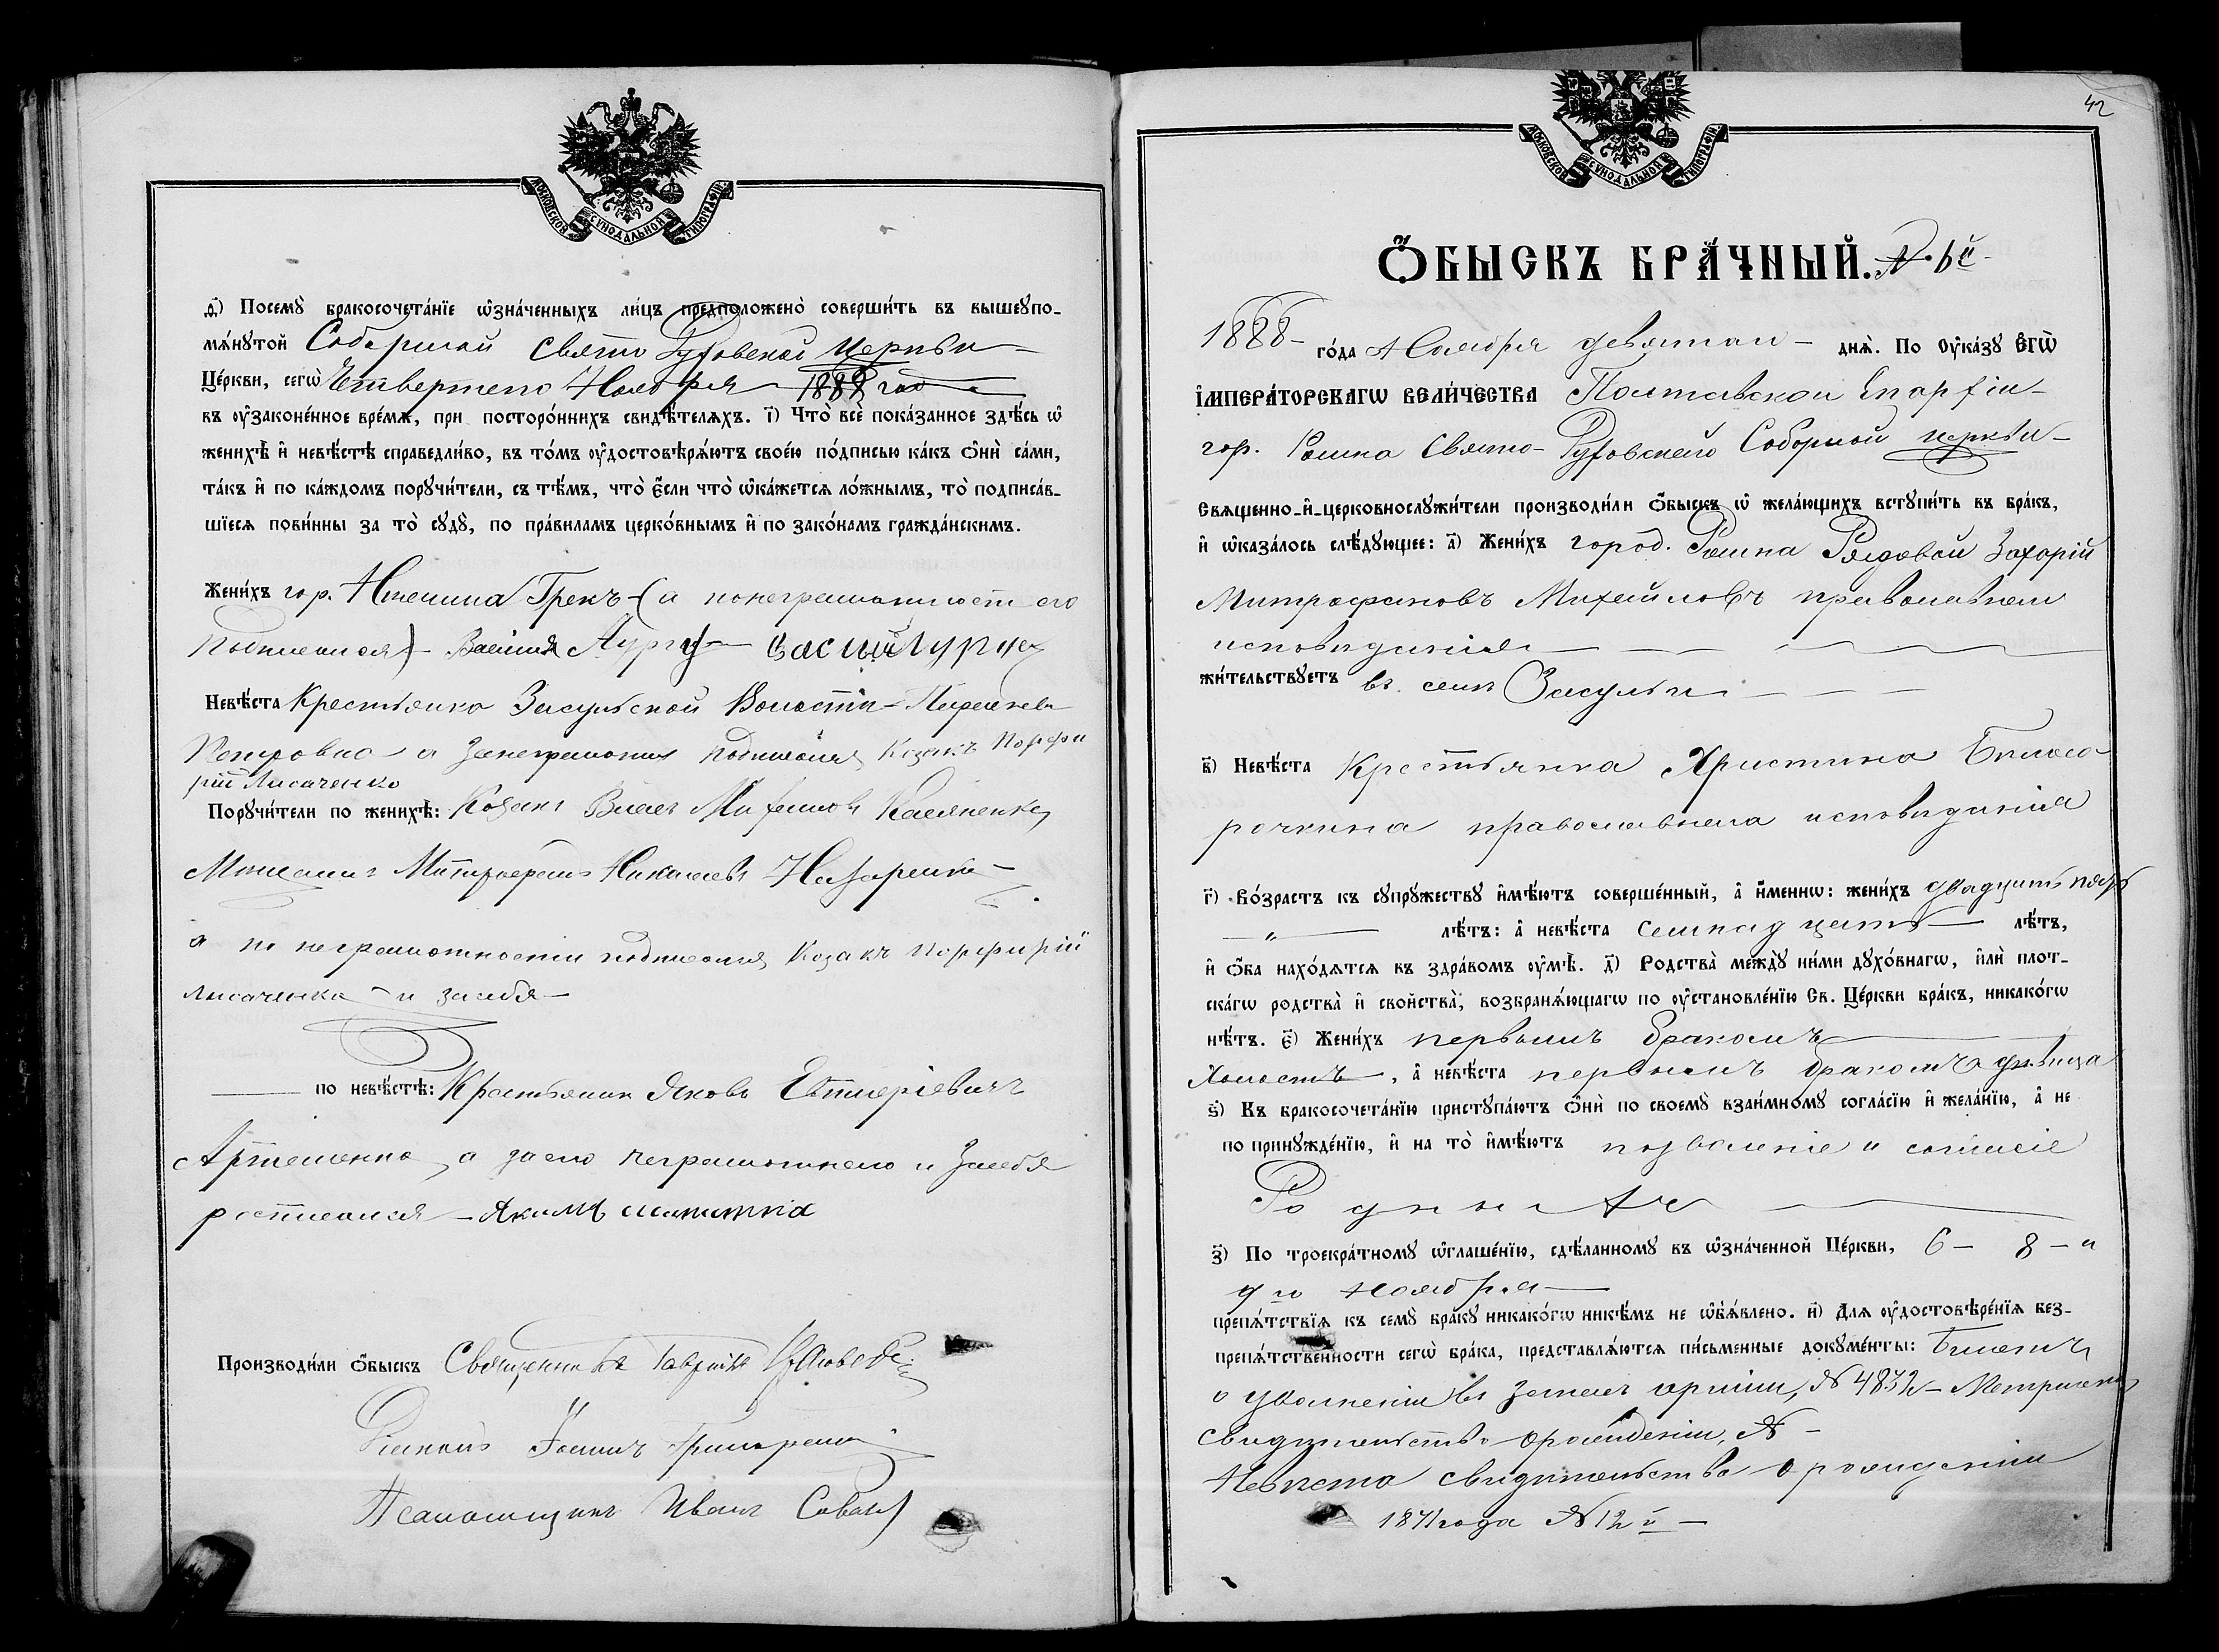 МОСКОВСКОЙ СѴНОДАЛЬНОЙ ТИПОГРАФІИ
ѳ҃) Посемꙋ̀ бракосочета́нїе ѡ҆зна́ченныхъ ли́цъ предположено̀ соверши́ть въ вышеꙋпо-
мѧ́нꙋтой Соборной Свято Духовской церкви
Це́ркви, сегѡ̀ Четвертого Ноября 1888 года
въ ᲂу҆законе́нное вре́мѧ, при посторо́ннихъ свидѣ́телѧхъ. і҃) Что̀ всѐ пока́занное здѣ́сь ѡ҆
женихѣ̀ и҆ невѣ́стѣ справедли́во, въ то́мъ ᲂу҆достовѣрѧ́ютъ свое́ю по́дписью ка́къ ѻ҆нѝ са́ми,
та́къ и҆ по ка́ждомъ порꙋчи́тели, съ тѣ́мъ, что̀ є҆́сли что̀ ѡ҆ка́жетсѧ ло́жнымъ, то̀ подписа́в-
шїесѧ пови́нны за то̀ сꙋдꙋ̀, по пра́виламъ церко́внымъ и҆ по зако́намъ гражда́нскимъ.
Жени́хъ гор. Грекъ (а по неграмотности его
подписался) Василий
Невѣ́ста Крестьянка Засульской Волости
Петровна а за неграмотн подписался Козакъ Порфи
рій Лисаченко
Порꙋчи́тели по женихѣ̀: Козакъ Михайловъ Касяненко
Мѣщанинъ Митрофанъ Николаевъ Назаренко
а по неграмотности подписался Козакъ Порфирій
Лисаченко и засебя
по невѣ́стѣ: Крестьянинъ Яковъ
Артеменко, а заего неграмотного и засебя
росписался Акимъ
Производи́ли ѻ҆́быскъ Священникъ Гавріилъ
Діаконъ Іоаннъ Григоренко
Псаломщикъ Иванъ Савон
42
МОСКОВСКОЙ СѴНОДАЛЬНОЙ ТИПОГРАФІИ
Ѻ҆́БЫСКЪ БРА́ЧНЫЙ. №
1888 го́да Ноября девятого днѧ̀. По ᲂу҆ка́зꙋ Є҆ГѠ̀
І҆МПЕРА́ТОРСКАГѠ ВЕЛИ́ЧЕСТВА Полтавской Епархіи
гор. Ромна Свято-Духовской Соборной церкви
Свѧщенно-и҆-церковнослꙋжи́тели производи́ли ѻ҆́быскъ ѡ҆ жела́ющихъ встꙋпи́ть въ бра́къ,
и҆ ѡ҆каза́лось слѣ́дꙋющее: а҃) Жени́хъ город. Ромна Рядовой Захорій
Митрофановъ Михайловъ православнаго
исповѣданія
жи́тельствꙋетъ въ селѣ Засульи
в҃) Невѣ́ста Крестьянка Христина Бѣлосо
рочкина православнаго исповѣданія
г҃) Во́зрастъ къ сꙋпрꙋ́жествꙋ и҆мѣ́ютъ соверше́нный, а҆ и҆́менно: жени́хъ двадцать пять
лѣ́тъ: а҆ невѣ́ста семнадцать лѣ́тъ,
и҆ ѻ҆́ба нахо́дѧтсѧ въ здра́вомъ ᲂу҆мѣ̀. д҃) Родства̀ междꙋ̀ ни́ми дꙋхо́внагѡ, и҆лѝ плот-
ска́гѡ родства̀ и҆ сво́йства̀, возбранѧ́ющагѡ по ᲂу҆становле́нїю Св. Це́ркви бра́къ, никако́гѡ
нѣ́тъ. є҃) Жени́хъ первымъ бракомъ
Холостъ, а҆ невѣ́ста первымъ бракомъ дѣвица
ѕ҃) Къ бракосочета́нїю пристꙋпа́ютъ ѻ҆нѝ по своемꙋ̀ взаи́мномꙋ согла́сїю и҆ жела́нїю, а҆ не
по принꙋжде́нїю, и҆ на то̀ и҆мѣ́ютъ позволеніе и согласіе
з҃) По троекра́тномꙋ ѡ҆глаше́нїю, сдѣ́ланномꙋ въ ѡ҆зна́ченной Це́ркви, 6 – 8 – и
9 го ноября
препѧ́тствїѧ къ семꙋ̀ бра́кꙋ никако́гѡ нике́мъ не ѡ҆бъѧ́влено. и҃) Для ᲂу҆достовѣре́нїѧ без-
препѧ́тственности сегѡ̀ бра́ка, представлѧ́ютсѧ пи́сьменные докꙋме́нты: Билетъ
о увольненіи въ запасъ арміи, № 4832 – Метрическ
свидѣтельство о рожденіи, №
Невѣста свидѣтельство о рожденіи
1871 года № 12й